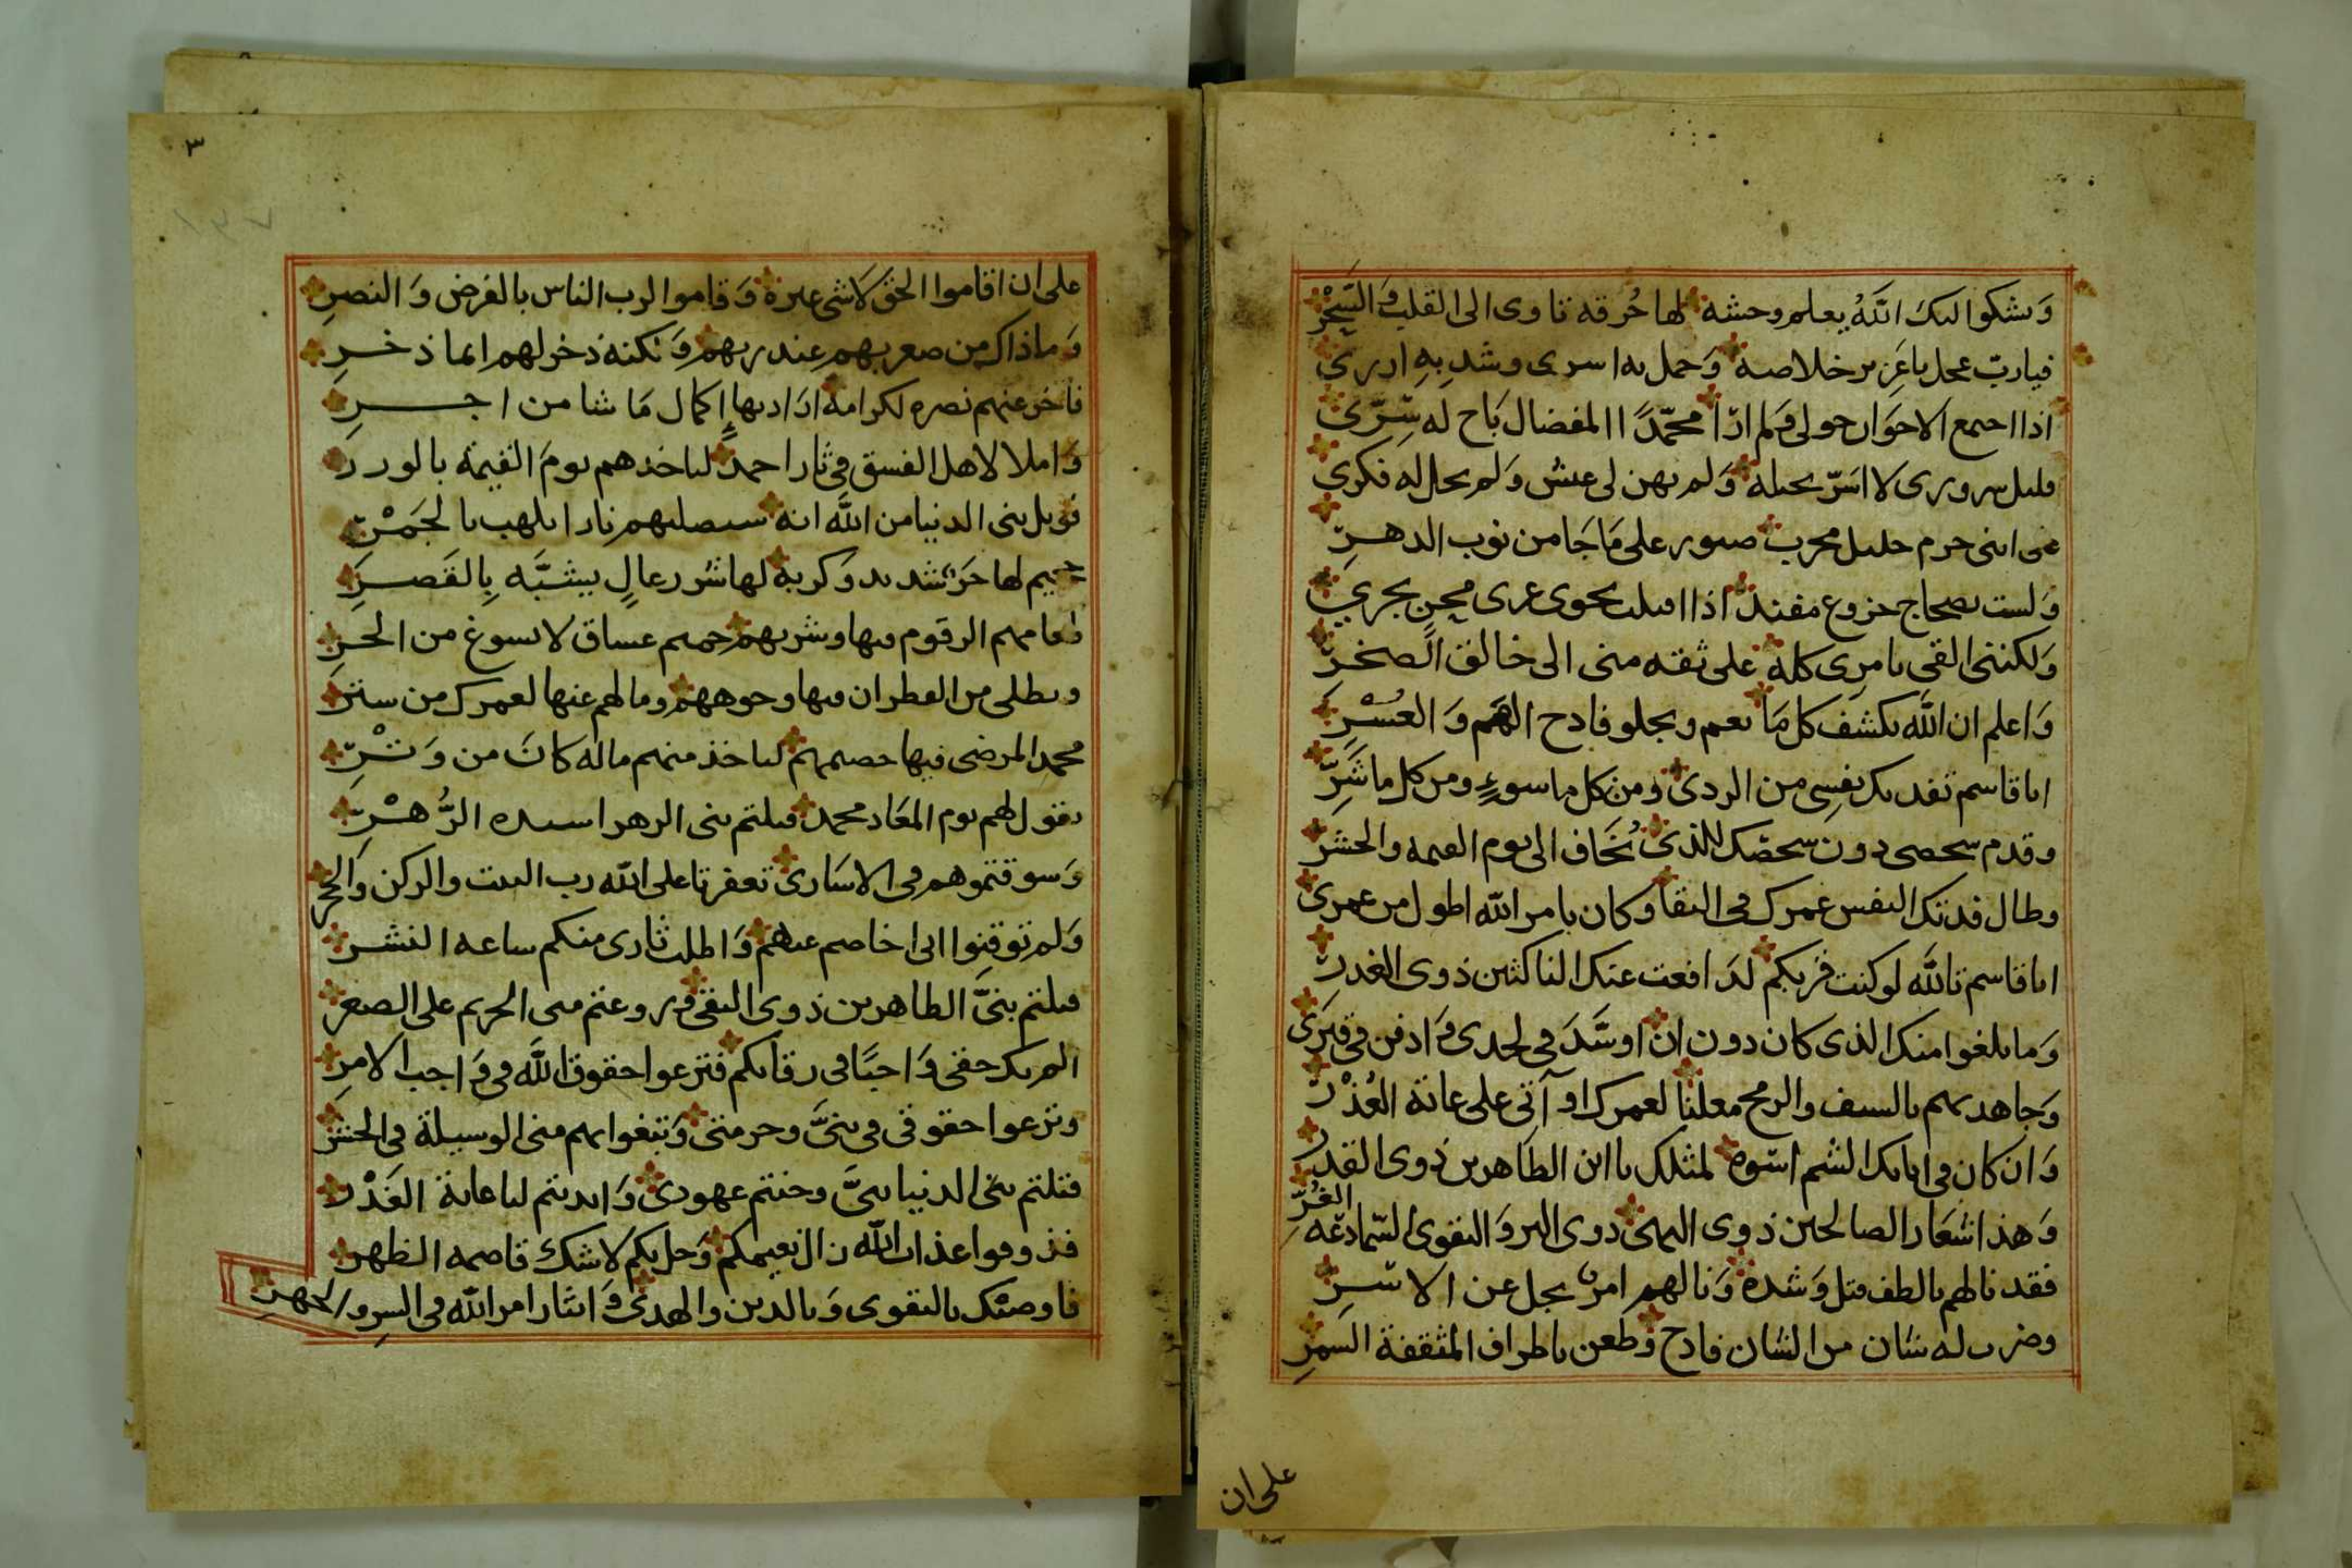 وَىشكوا الىك اللّهُ يعلم وحشه لها حُرقه تاوى الى القلب وَالسَّحْرِ
فيا ربّ عجل يا عَزِيز خلاصه وَحمل به اسرى وشد بِهِ ازرى
اذا احىمع الاحوان حولى وَلم ارَا محمّدًا المفضال بَاح له سِرّى
قليل سرورى لا اسَرّ بحيله وَلم يهن لى عيش وَلم يحل له فكرى
على اىنى حرم جليل مجرب صبور على مَا جَا من نوب الدهر
وَلست بصحاح جزوع مفند اذا اقبلت نحوى عرى محن يجري
وَلكننى القى بامرى كله على ثقه منى الى خالق الصخر
وَاعلم ان اللّه يكشف كل مَا يعم ويجلو فادح الهَم وَالعُسْرِ
ابا قاسم تفديك نفسِى من الردى ومن كل ما سوءٍ ومن كل ما شَرِّ
وقدم شخصى دون شخصك للذى نُخَاف الى يوم القيمه والحشر
وطال فدتك النفس عمرك فى البقا وكان بامر اللّه اطول من عمرى
ابا قاسم تاللّه لو كنت قربكم لدَافعت عنك الناكثين ذوى الغدر
وَما بلغوا منك الذى كان دون ان اوسَّدَ فى لحدى وَادفن فى قبرَى
وَجاهدتهم بالسيف والرمح معلنا لعمرك او آتى على غاية العُذْر
وَان كان فى اباىك الشم اسوه لمثلك يا ابن الطاهرين ذوى القدر
وَهذا شعَار الصالحين ذوى النهى ذوى البر وَالتقوى السّمادعه الغُرِّ
فقد نالهم بالطف قتل وَشده وَنالهم امرٌ يجل عن الاسر
وضرب له شان من الشان فادح وَطعن باطراف المثقفة السمر
على ان
٣
على ان اقاموا الحق لا شى غيره وَقاموا لرب الناس بالفرض وَالنصرِ
وَماذاك من صغر بهم عند ربهم وَلكنه ذخر لهم ايما ذخر
فاخر عنهم نصره لكرامه ارَاد بها إِكمال مَا شا من اجر
وَاملا لاهل الفسق فى ثار احمد لىاخذهم يومَ القيمَة بالورر
فويل بنى الدنيا من اللّه انه سيصليهم نارا تلهب بالجَمْر
جحيم لها حَرّ شديد وَكربه لها شرر عالٍ يشبَّه بِالقَصرِ
طعامهم الزقوم فيها وشربهم حميم غساق لا يسوغ من الحر
ويطلى من القطران فيها وجوههم وما لهم عنها لعمرك من ستر
محمد المرضى فيها خصيمهم لياخذ منهم ماله كانَ من وَتْرِ
يقول لهم يوم المعَاد محمد قتلتم بنى الزهرا سيده الزُّهْر
وَسوقتموهم فى الاسَارى تعفرتا على اللّه رب البيت والركن وَالحجر
وَلم توقِنوا انى اخاصم عنهم وَاطلب ثارى منكم ساعه النشر
قتلتم بنىَّ الطاهرين ذوى التقى وَروعتم منى الحريم على الصغر
الم يك حقى وَاجبًا فى رقابكم فترعوا حقوق اللّه فى وَاجب الامرِ
وترعوا حقوقى فى بنىَّ وحرمتى وَتبغوا بهم منى الوسيلة فى الحشر
قتلتم بنى الدنيا بنىَّ وخنتم عهودى وَابديتم لنا غاية الغَدْر
فذوقوا عذاب اللّه زال نعيمكم وَحل بكم لا شك قاصمه الظهر
فاوصيك بالتقوى وَبالدين والهدى وَايثار امر اللّه فى السر والجهر